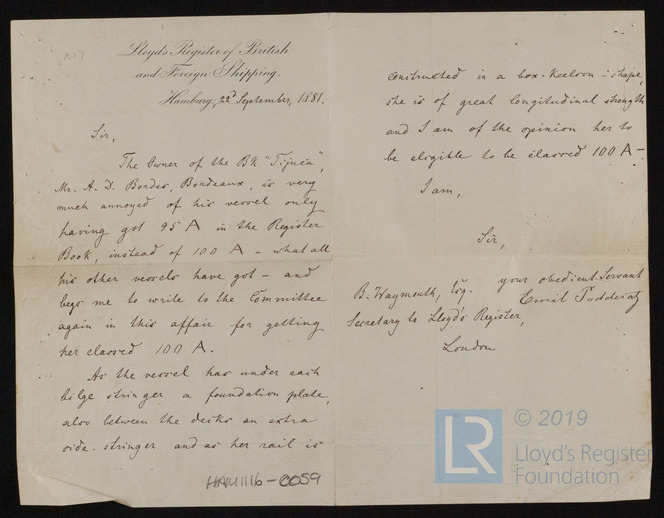 Lloyd's Register of British
and Foreign Shipping.
Hamburg, 22d September, 1881.
Sir,
The Owner of the Bk "Tijuca",
Mr. A. D. Bordes, Bordeaux, is very
much annoyed of his vessel only
having got 95 A in the Register
Book, instead of 100 A - what all
his other vessels have got - and
begs me to write to the Committee
again in this affair for getting
her classed 100 A.
As the vessel has under each
bilge stringer a foundation plate,
also between the decks an extra
side-stringer and as her rail is
HAM1116-0059
constructed in a box-keelson-shape,
she is of great longitudinal strength
and I am of the opinion her to
be eligible to be classed 100 A-.
I am,
Sir,
your obedient Servant
Emil Padderatz
B. Waymouth, Esq.
Secretary to Lloyd's Register,
London
LR
© 2019
Lloyd's Register
Foundation